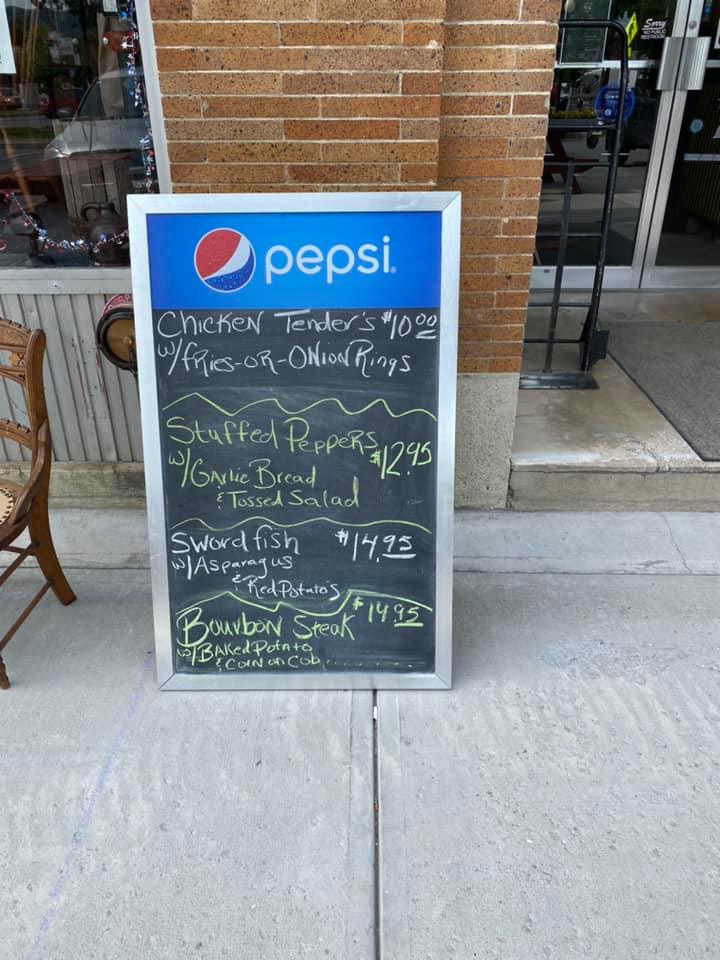 Sorry
NO PUBLIC
RESTROOM
pepsi
Chicken Tender's $10.00
w/fries-or-Onion Rings
Stuffed Peppers $12.95
w/Garlic Bread
& Tossed Salad
Swordfish $14.95
w/Asparagus
& Red Potato's
Bourbon Steak $14.95
w/Baked Potato
& Corn on Cob........